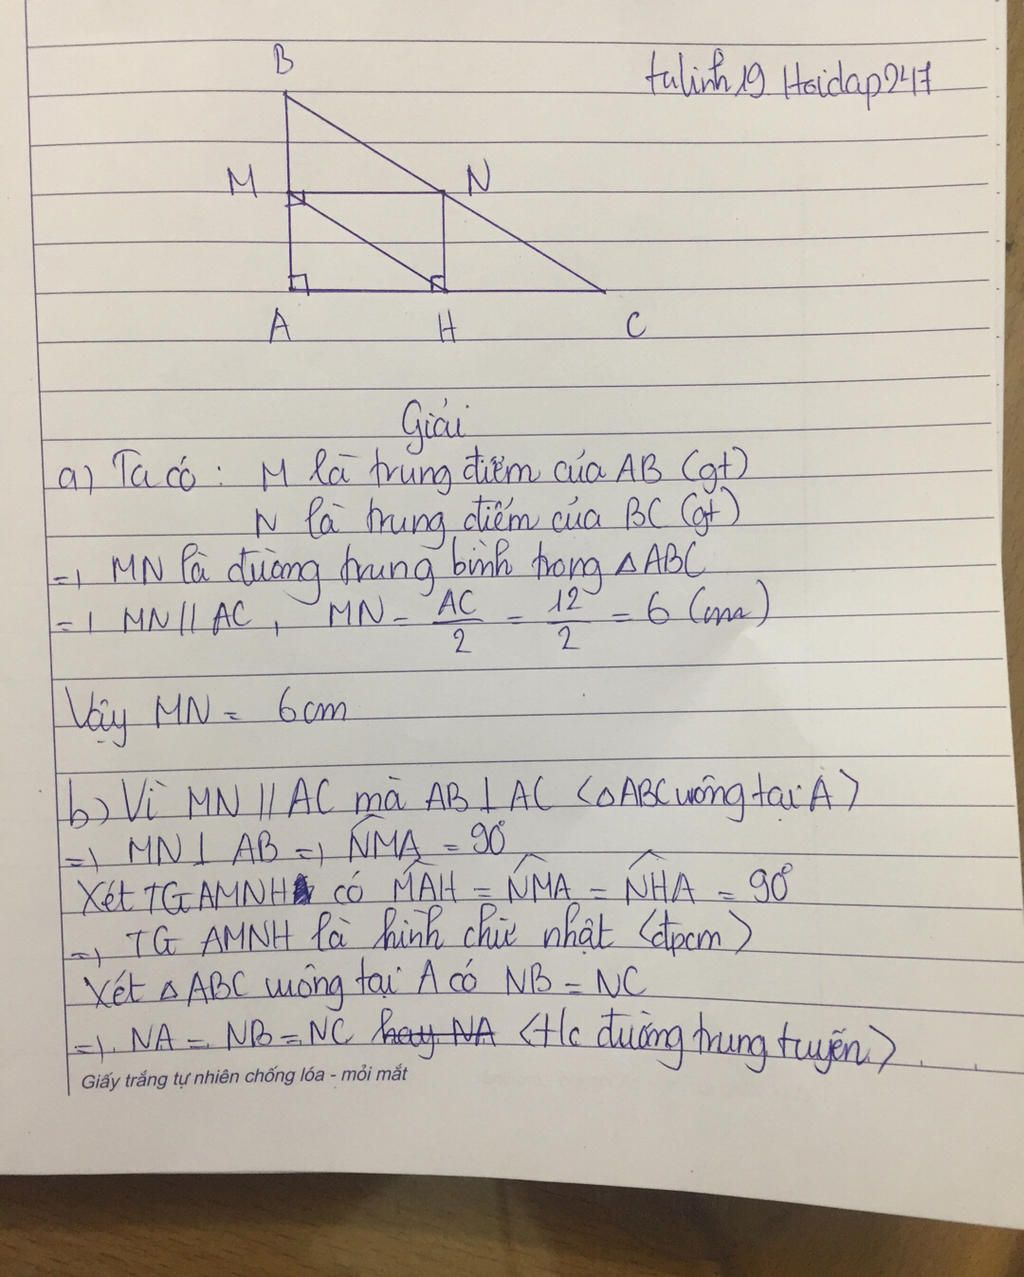 B
tulinh19 Hoidap247
M
N
A
H
C
Giải
a) Ta có : M là trung điểm của AB (gt)
N là trung điểm của BC (gt)
=> MN là đường trung bình trong △ABC
=> MN // AC , MN = AC/2 = 12/2 = 6 (cm)
Vậy MN = 6cm
b) Vì MN // AC mà AB ⊥ AC (△ABC vuông tại A)
=> MN ⊥ AB => NMA = 90°
Xét TG AMNH có MAH = NMA = NHA = 90°
=> TG AMNH là hình chữ nhật (đpcm)
Xét △ABC vuông tại A có NB = NC
=> NA = NB = NC hay NA (t/c đường trung tuyến)
Giấy trắng tự nhiên chống lóa - mỏi mắt